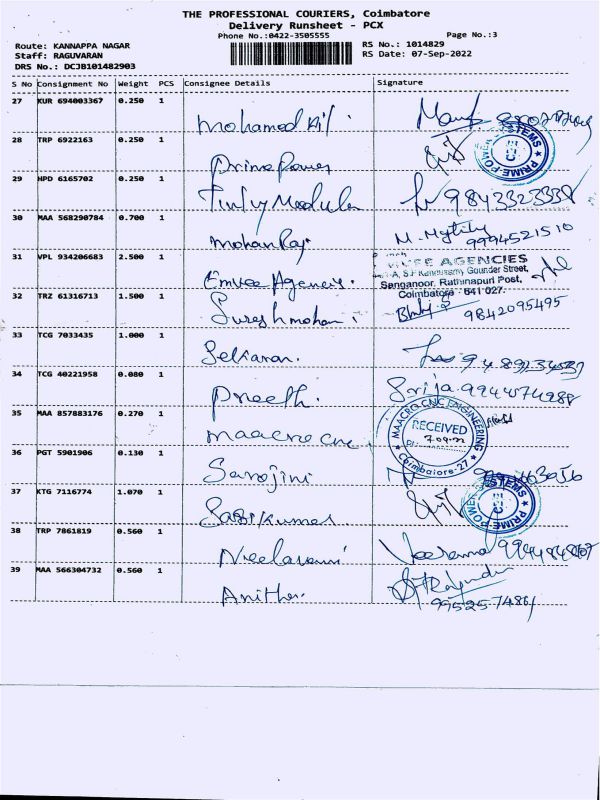 THE PROFESSIONAL COURIERS, Coimbatore
Delivery Runsheet - PCX
Phone No.:0422-3505555 Page No.:3
Route: KANNAPPA NAGAR RS No.: 1014829
Staff: RAGUVARAN RS Date: 07-Sep-2022
DRS No.: DCJB101482903
S No Consignment No Weight PCS Consignee Details Signature
27 KUR 694003367 0.250 1
Mohamed
28 TRP 6922163 0.250 1
Prime Power
PRIME POWER SYSTEMS
CBE
29 HPD 6165702 0.250 1
9843323338
30 MAA 568290784 0.700 1
MohanRaj M. Mythily
9994521510
31 VPL 934206683 2.500 1
Emvee Agencies.
AGENCIES
Gounder Street,
Sanganoor, Rathinapuri Post,
Coimbatore - 641 027.
32 TRZ 61316713 1.500 1
Sureshmohan 9842095495
33 TCG 7033435 1.000 1
Selvaran.
34 TCG 40221958 0.080 1
Preethi. Srija. 9944074988
35 MAA 857883176 0.270 1
Maacro cnc
MAACRO CNC ENGINEERING
RECEIVED
7.09.22
Coimbatore-27
36 PGT 5901906 0.130 1
Sarojini
37 KTG 7116774 1.070 1
Sasikumar
PRIME POWER SYSTEMS
CBE
38 TRP 7861819 0.560 1
39 MAA 566304732 0.560 1
Anitha.